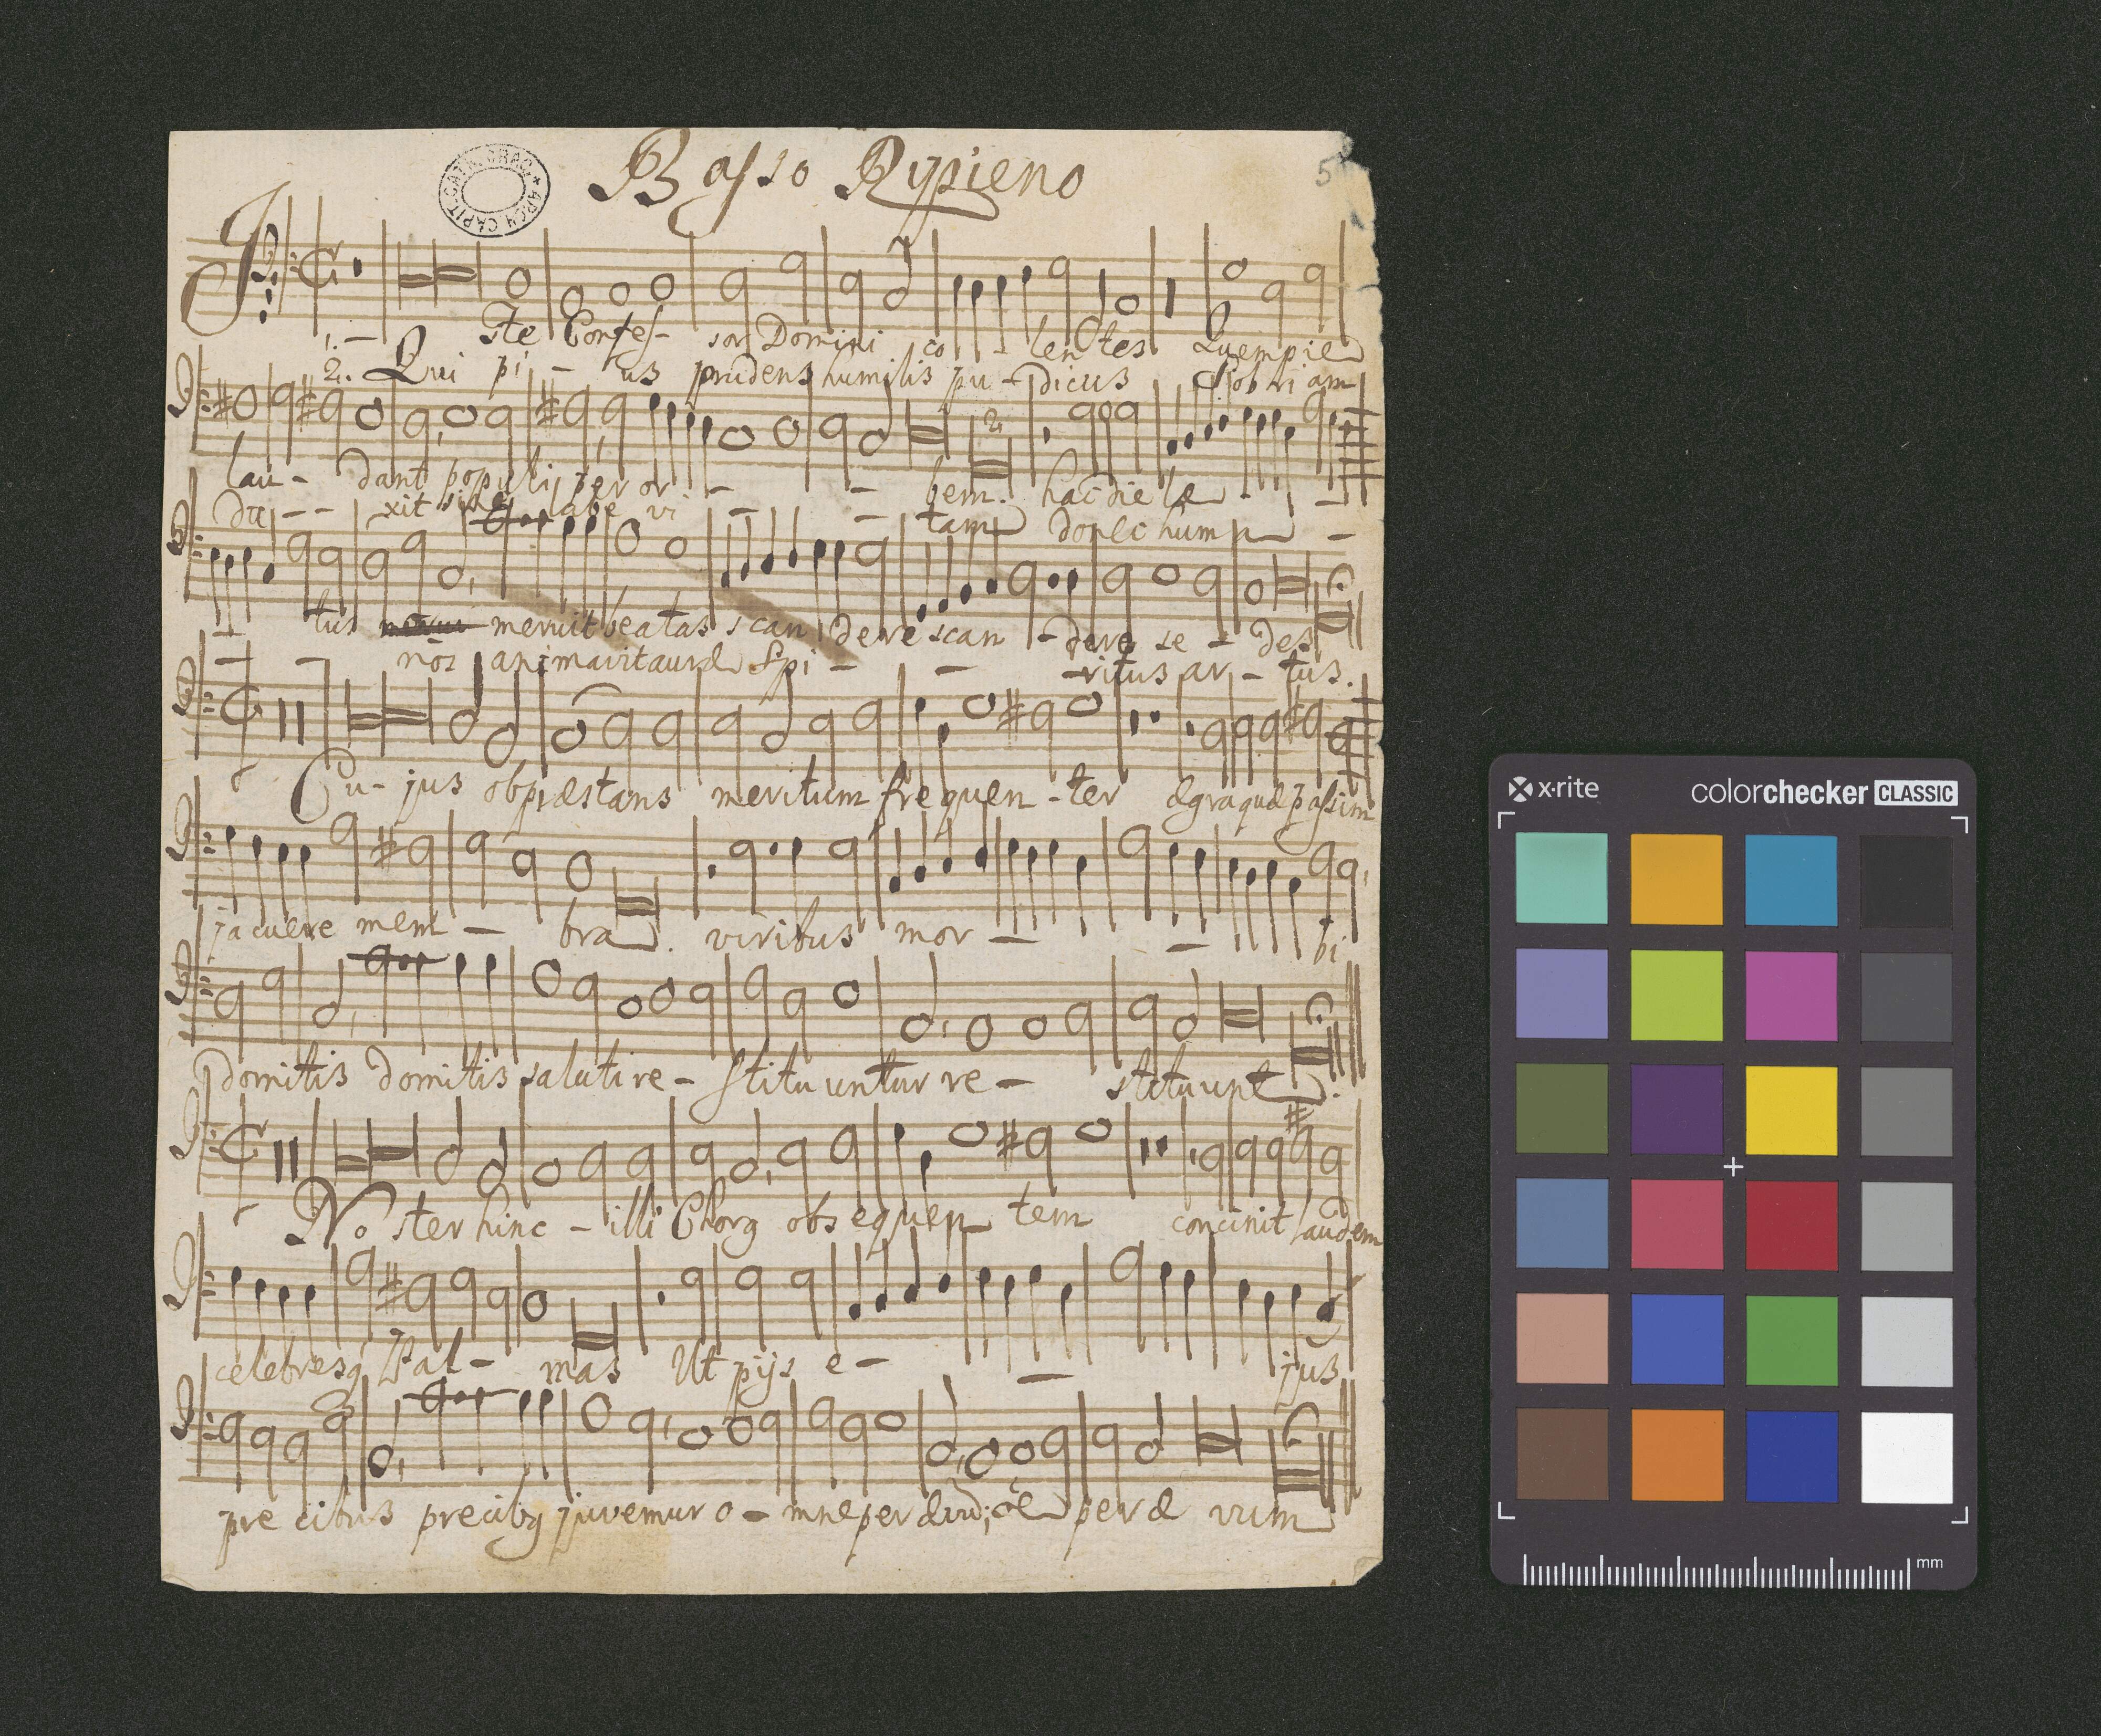 Basso Rypieno
CATH. CRAC. * ARCH. CAPIT.
5
1. – Iste Confes- sor Domini co - lentes Quem pie
2. Qui pi - us prudens humilis pu - dicus Sobriam
lau - dant populi per or - - bem. hac die læ - -
du - - xit sine labe vi - - tam donec hum -
- tus meruit beatas scan dere scan - dere se - des
- - nos animavit auræ Spi - - - ritus ar - tus.
Cu - jus ob præstans meritum frequen - ter ægra quæ passim
jacuere mem - bra. viribus mor - - bi
domitis domitis saluti re - stituuntur re - stituunt.
No ster hinc - illi Chorq obsequen tem concinit laudem
celebresq Pal - mas Ut pijs e - - jus
pre cibus precibq juvemur o - mne per ævū; oe per æ vum
x·rite
colorchecker CLASSIC
mm